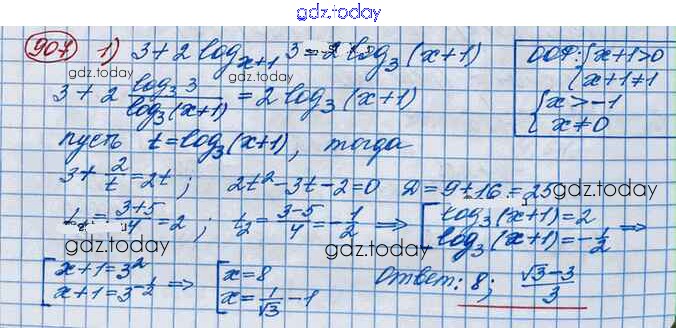 gdz.today
907 1) 3+2 log_{x+1} 3 = 2 log_3 (x+1)
ООФ: { x+1>0
{ x+1≠1
{ x>-1
{ x≠0
gdz.today
3+2 \frac{log_3 3}{log_3 (x+1)} = 2 log_3 (x+1)
пусть t=log_3 (x+1), тогда
gdz.today
3+\frac{2}{t}=2t; 2t^2-3t-2=0 D=9+16=25
gdz.today
t_1=\frac{3+5}{4}=2; t_2=\frac{3-5}{4}=-\frac{1}{2} ⇒ [ log_3 (x+1)=2
[ log_3 (x+1)=-\frac{1}{2} ⇒
gdz.today
gdz.today
[ x+1=3^2
[ x+1=3^{-\frac{1}{2}} ⇒ [ x=8
[ x=\frac{1}{√3}-1
Ответ: 8; \frac{√3-3}{3}
gdz.today